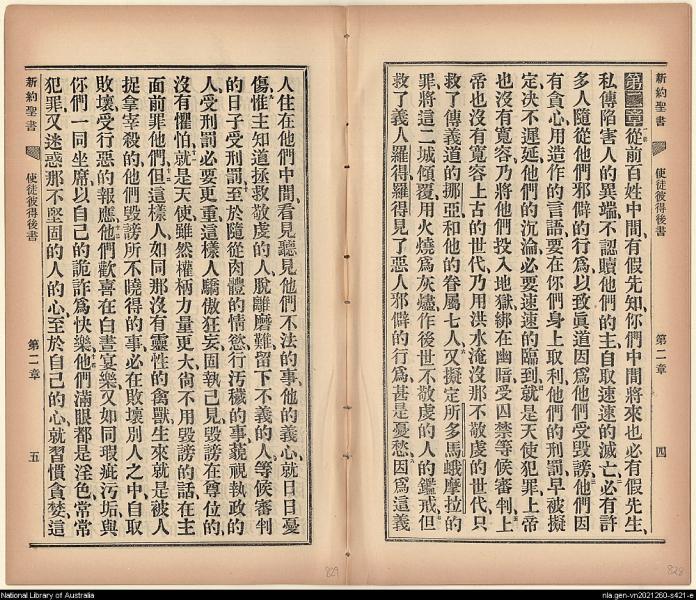 新約聖書 使徒彼得後書 第二章 四
第二章從前百姓中間有假先知、你們中間將來也必有假先生、
私傳陷害人的異端、不認贖他們的主、自取速速的滅亡、必有許
多人隨從他們邪僻的行爲、以致眞道因爲他們受毀謗、他們因
有貪心、用造作的言語、要在你們身上取利、他們的刑罰、早被擬
定、決不遲延、他們的沉淪、必要速速的臨到、就是天使犯罪、上帝
也沒有寬容、乃將他們投入地獄、綁在幽暗、受囚禁等候審判、上
帝也沒有寬容上古的世代、乃用洪水淹沒那不敬虔的世代、只
救了傳義道的挪亞、和他的眷屬七人、又擬定所多馬蛾摩拉的
罪、將這二城傾覆、用火燒爲灰燼、作後世不敬虔的人的鑑戒、但
救了義人羅得、羅得見了惡人邪僻的行爲、甚是憂愁、因爲這義
人住在他們中間、看見聽見他們不法的事、他的義心、就日日憂
傷、惟主知道拯救敬虔的人、脫離磨難、留下不義的人、等候審判
的日子受刑罰、至於隨從肉體的情慾、行汚穢的事、藐視執政的
人、受刑罰必要更重、這樣人驕傲狂妄、固執己見、毀謗在尊位的、
沒有懼怕、就是天使雖然權柄力量更大、尙不用毀謗的話、在主
面前罪他們、但這樣人、如同那沒有靈性的禽獸、生來就是被人
捉拿宰殺的、他們毀謗所不曉得的事、必在敗壞別人之中、自取
敗壞、受行惡的報應、他們歡喜在白晝宴樂、又如同瑕疵汚垢、與
你們一同坐席、以自己的詭詐爲快樂、他們滿眼都是淫色、常常
犯罪、又迷惑那不堅固的人的心、至於自己的心、就習慣貪婪、這
新約聖書 使徒彼得後書 第二章 五
829
828
National Library of Australia
nla.gen-vn2021260-s421-e